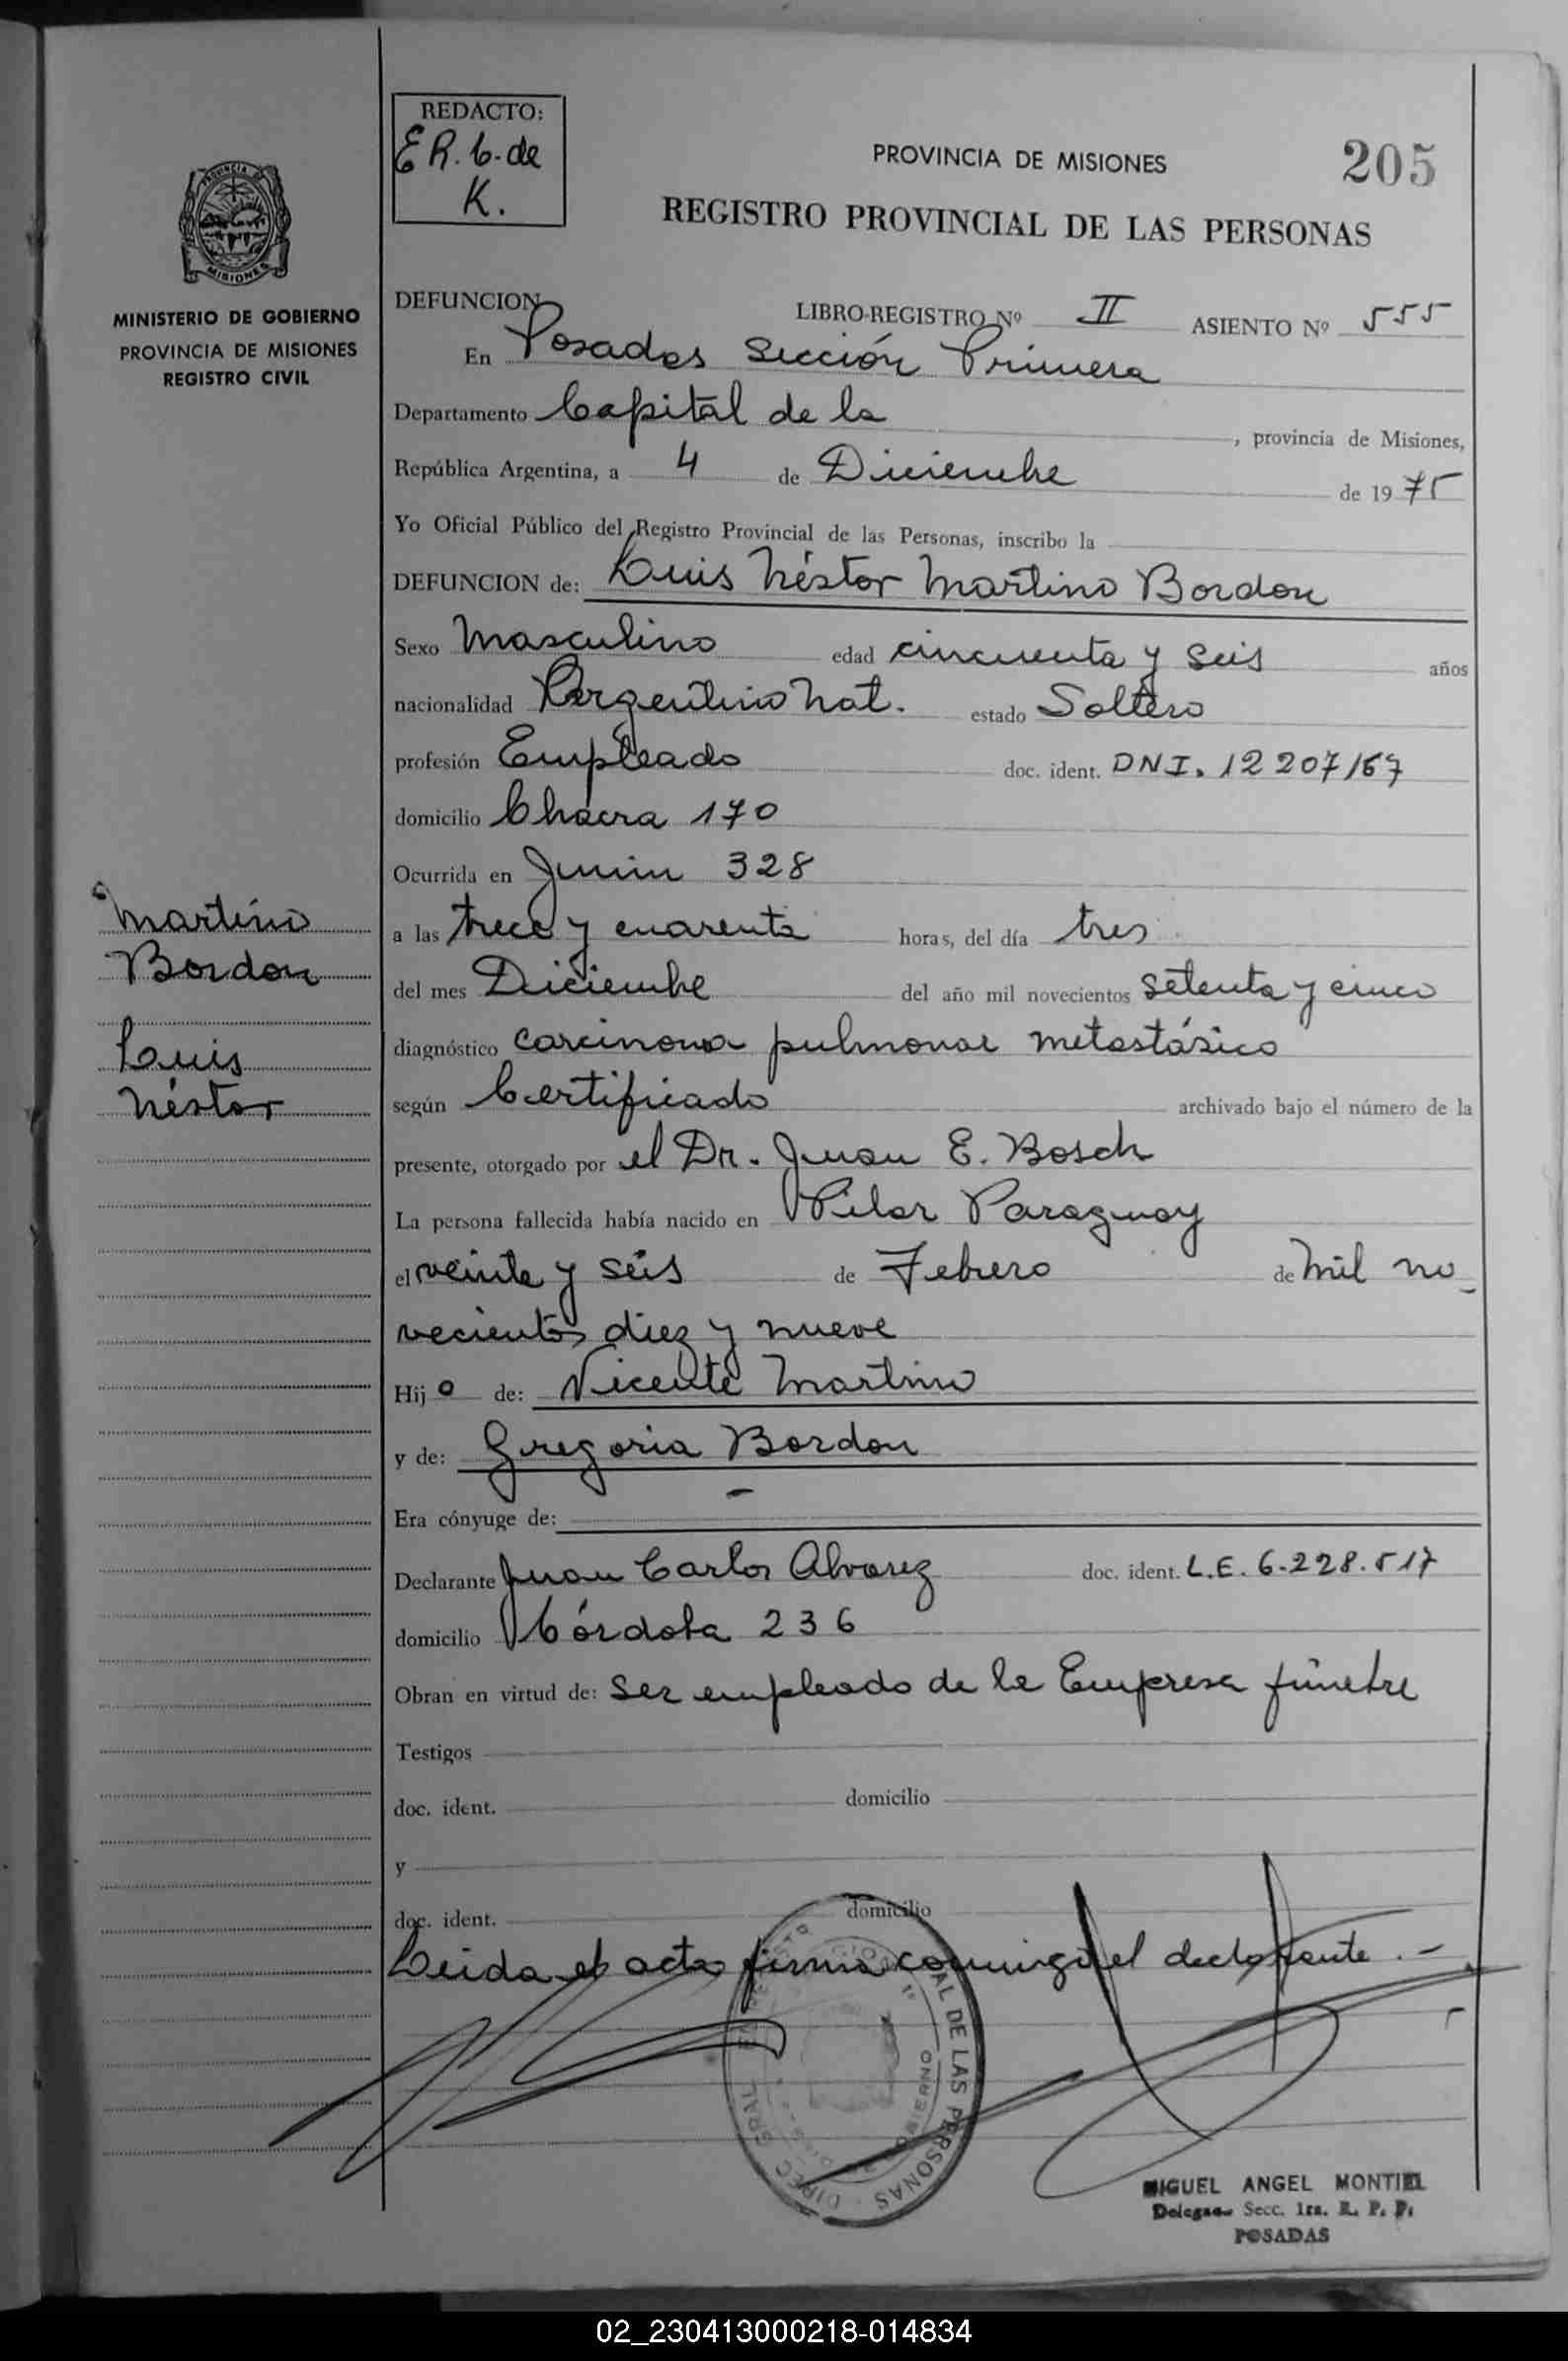 REDACTO:
E R. C. de
K.
PROVINCIA DE MISIONES
205
REGISTRO PROVINCIAL DE LAS PERSONAS
PROVINCIA DE
MISIONES
MINISTERIO DE GOBIERNO
PROVINCIA DE MISIONES
REGISTRO CIVIL
DEFUNCION
LIBRO-REGISTRO Nº II ASIENTO Nº 555
En Posadas Sección Primera
Departamento Capital de la , provincia de Misiones,
República Argentina, a 4 de Diciembre de 1975
Yo Oficial Público del Registro Provincial de las Personas, inscribo la
DEFUNCION de: Luis Néstor Martino Bordon
Sexo Masculino edad cincuenta y seis años
nacionalidad Argentino Nat. estado Soltero
profesión Empleado doc. ident. DNI. 12 207/67
domicilio Chacra 170
Ocurrida en Junin 328
Martino
Bordon
Luis
Néstor
a las trece y cuarenta horas, del día tres
del mes Diciembre del año mil novecientos setenta y cinco
diagnóstico carcinoma pulmonar metastásico
según Certificado archivado bajo el número de la
presente, otorgado por el Dr. Juan E. Bosch
La persona fallecida había nacido en Pilar Paraguay
el veinte y seis de Febrero de mil no-
vecientos diez y nueve
Hijo de: Vicente Martino
y de: Gregoria Bordon
Era cónyuge de: -
Declarante Juan Carlos Alvarez doc. ident. L.E. 6.228.517
domicilio Córdoba 236
Obran en virtud de: Ser empleado de la Empresa fúnebre
Testigos
doc. ident. domicilio
y
doc. ident. domicilio
Leida el acta firma conmigo el declarante.-
DIREC. GRAL. DE LAS PERSONAS
MIGUEL ANGEL MONTIEL
Delegado Secc. 1ra. R. P. P.
POSADAS
02_230413000218-014834